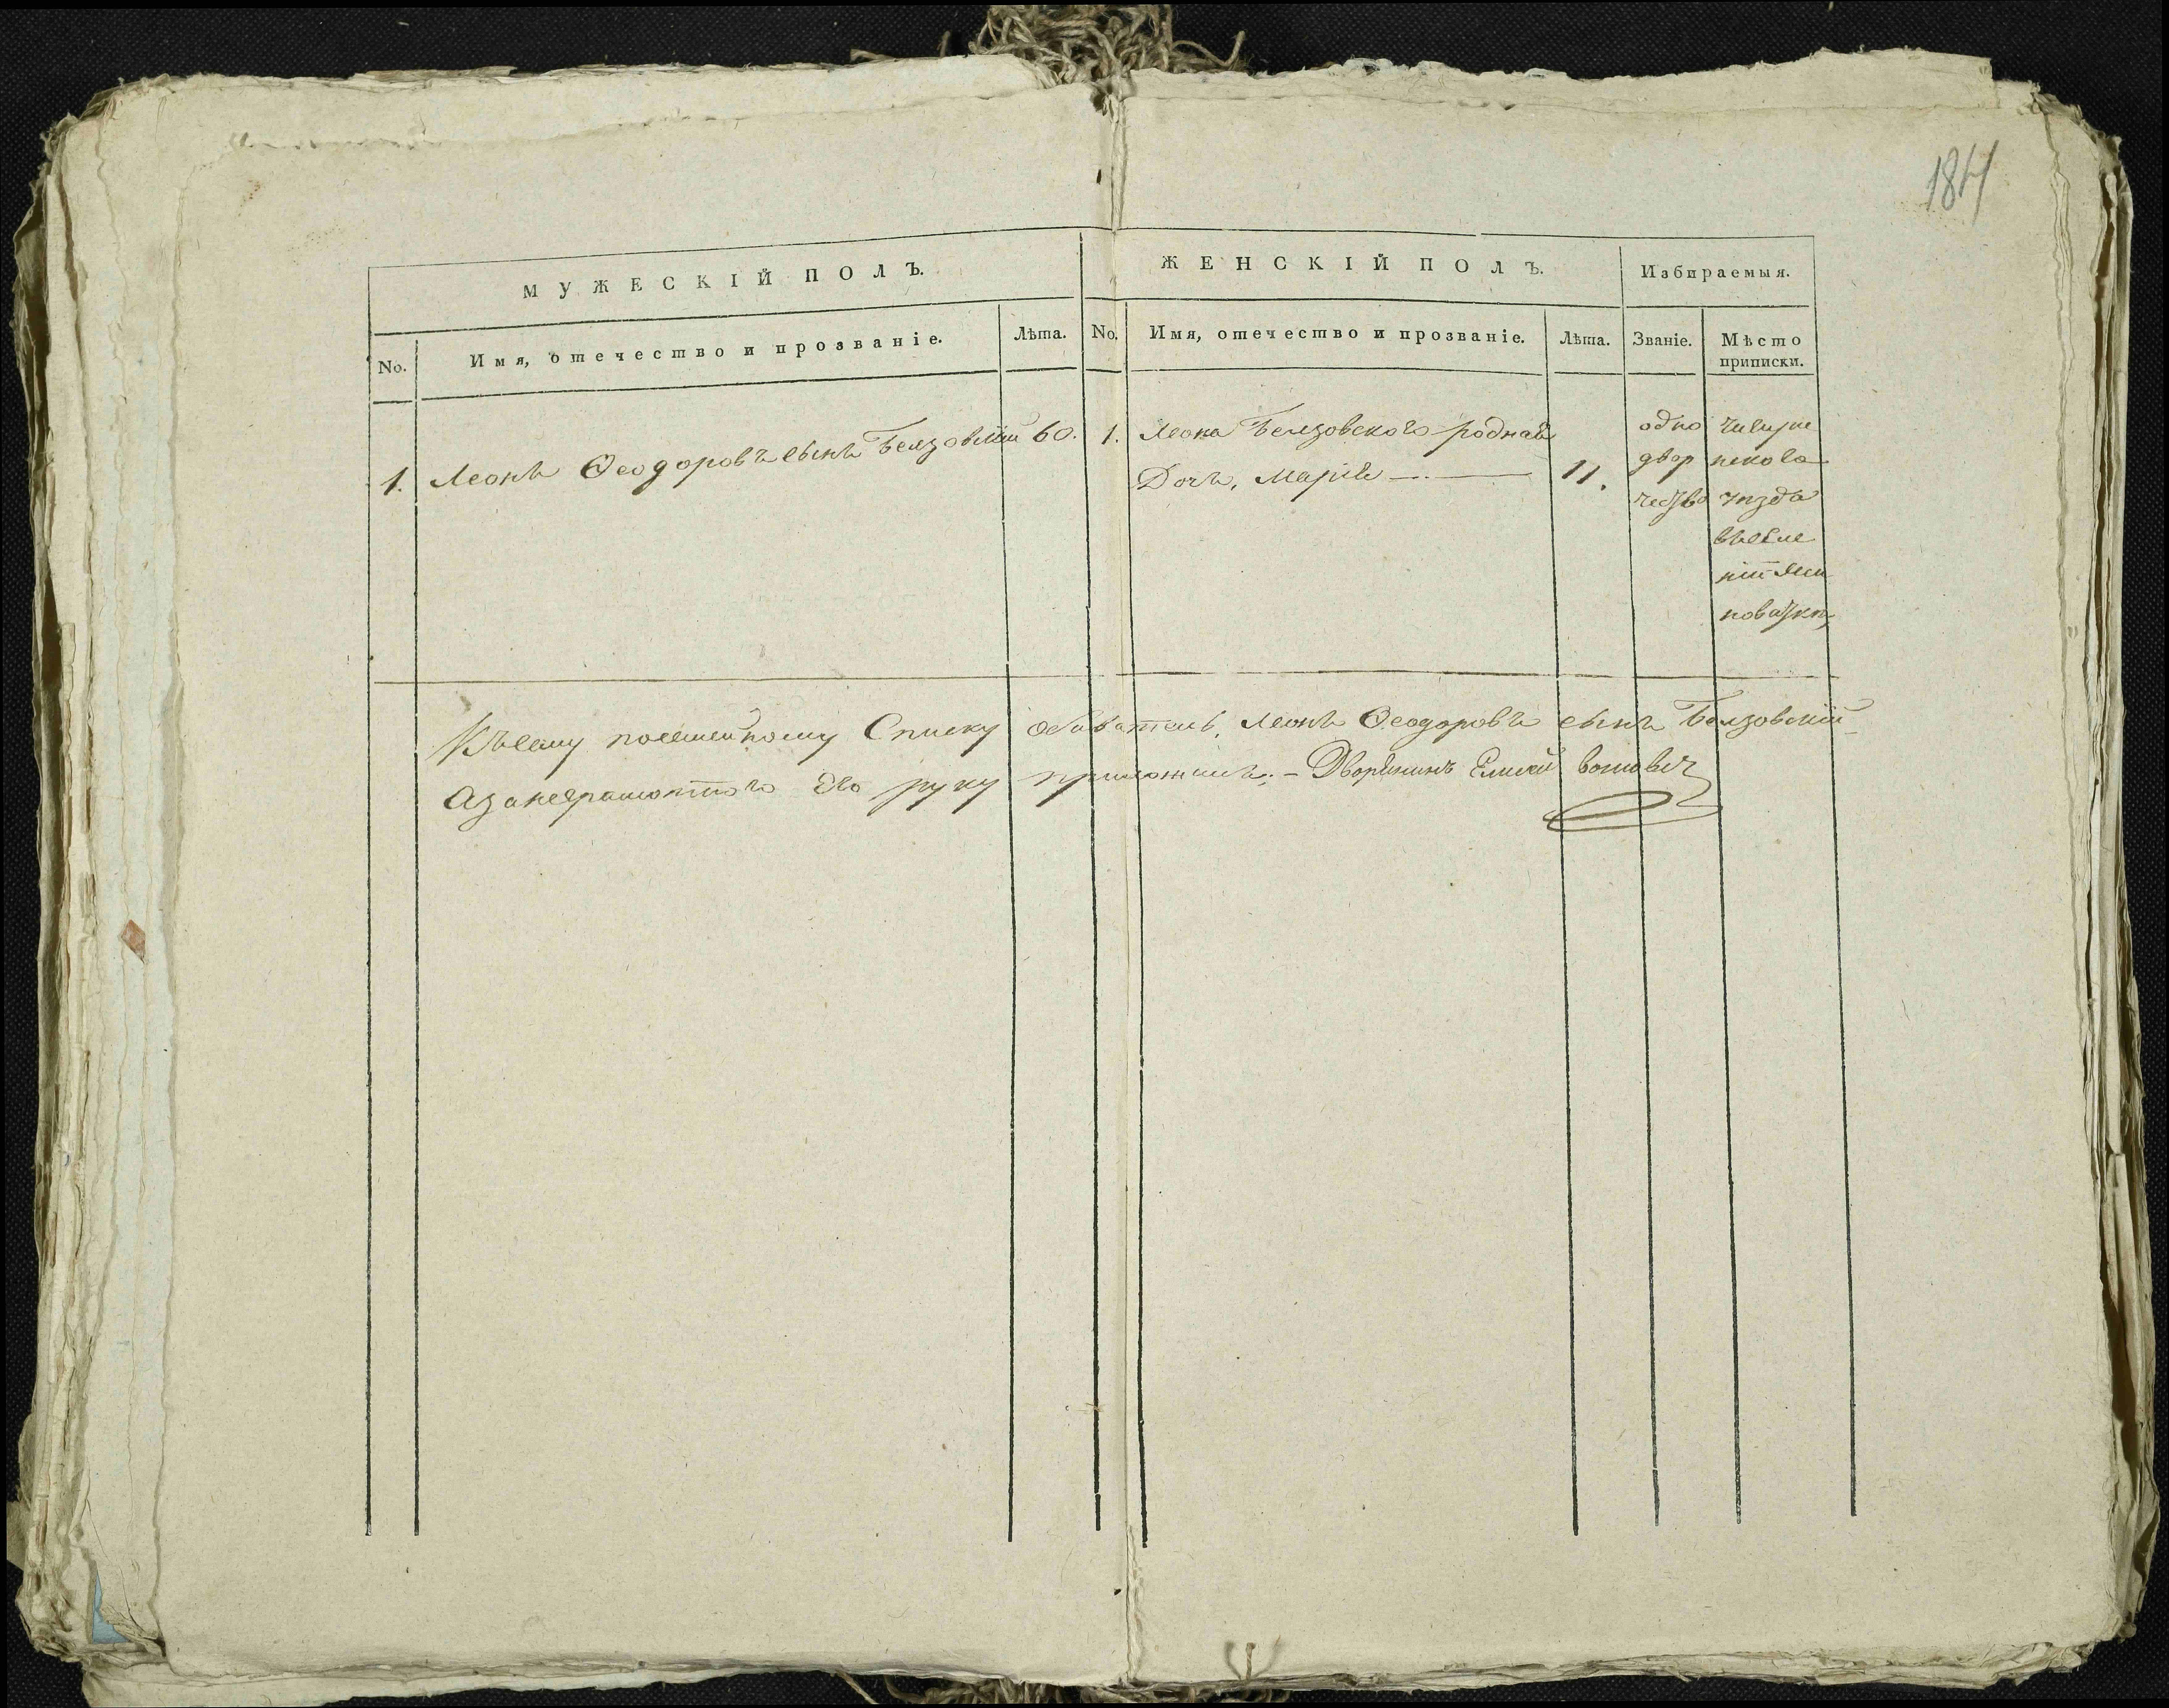 184
МУЖЕСКІЙ ПОЛЪ.
ЖЕНСКІЙ ПОЛЪ.
Избираемыя.
No.
Имя, отечество и прозваніе.
Лѣта.
No.
Имя, отечество и прозваніе.
Лѣта.
Званіе.
Мѣсто
приписки.
1. Леонъ Ѳеодоровъ сынъ Белзовскій 60.
1. Леона Белзовского родная
Дочь, Марія — 11.
одно
двор
чество
чигири
нского
уезда
Къ сему посемейному Списку обыватель, Леонъ Ѳеодоровъ сынъ Белзовскій
А за неграмотного Его руку приложилъ: – Дворянинъ